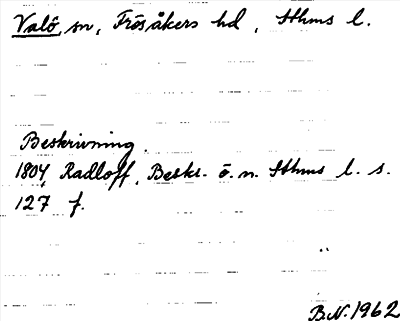 Valö sn, Frösåkers hd, Sthms l.
Beskrivning.
1804 Radloff, Beskr. ö. n. Sthms l. s.
127 f.
B.N. 1962